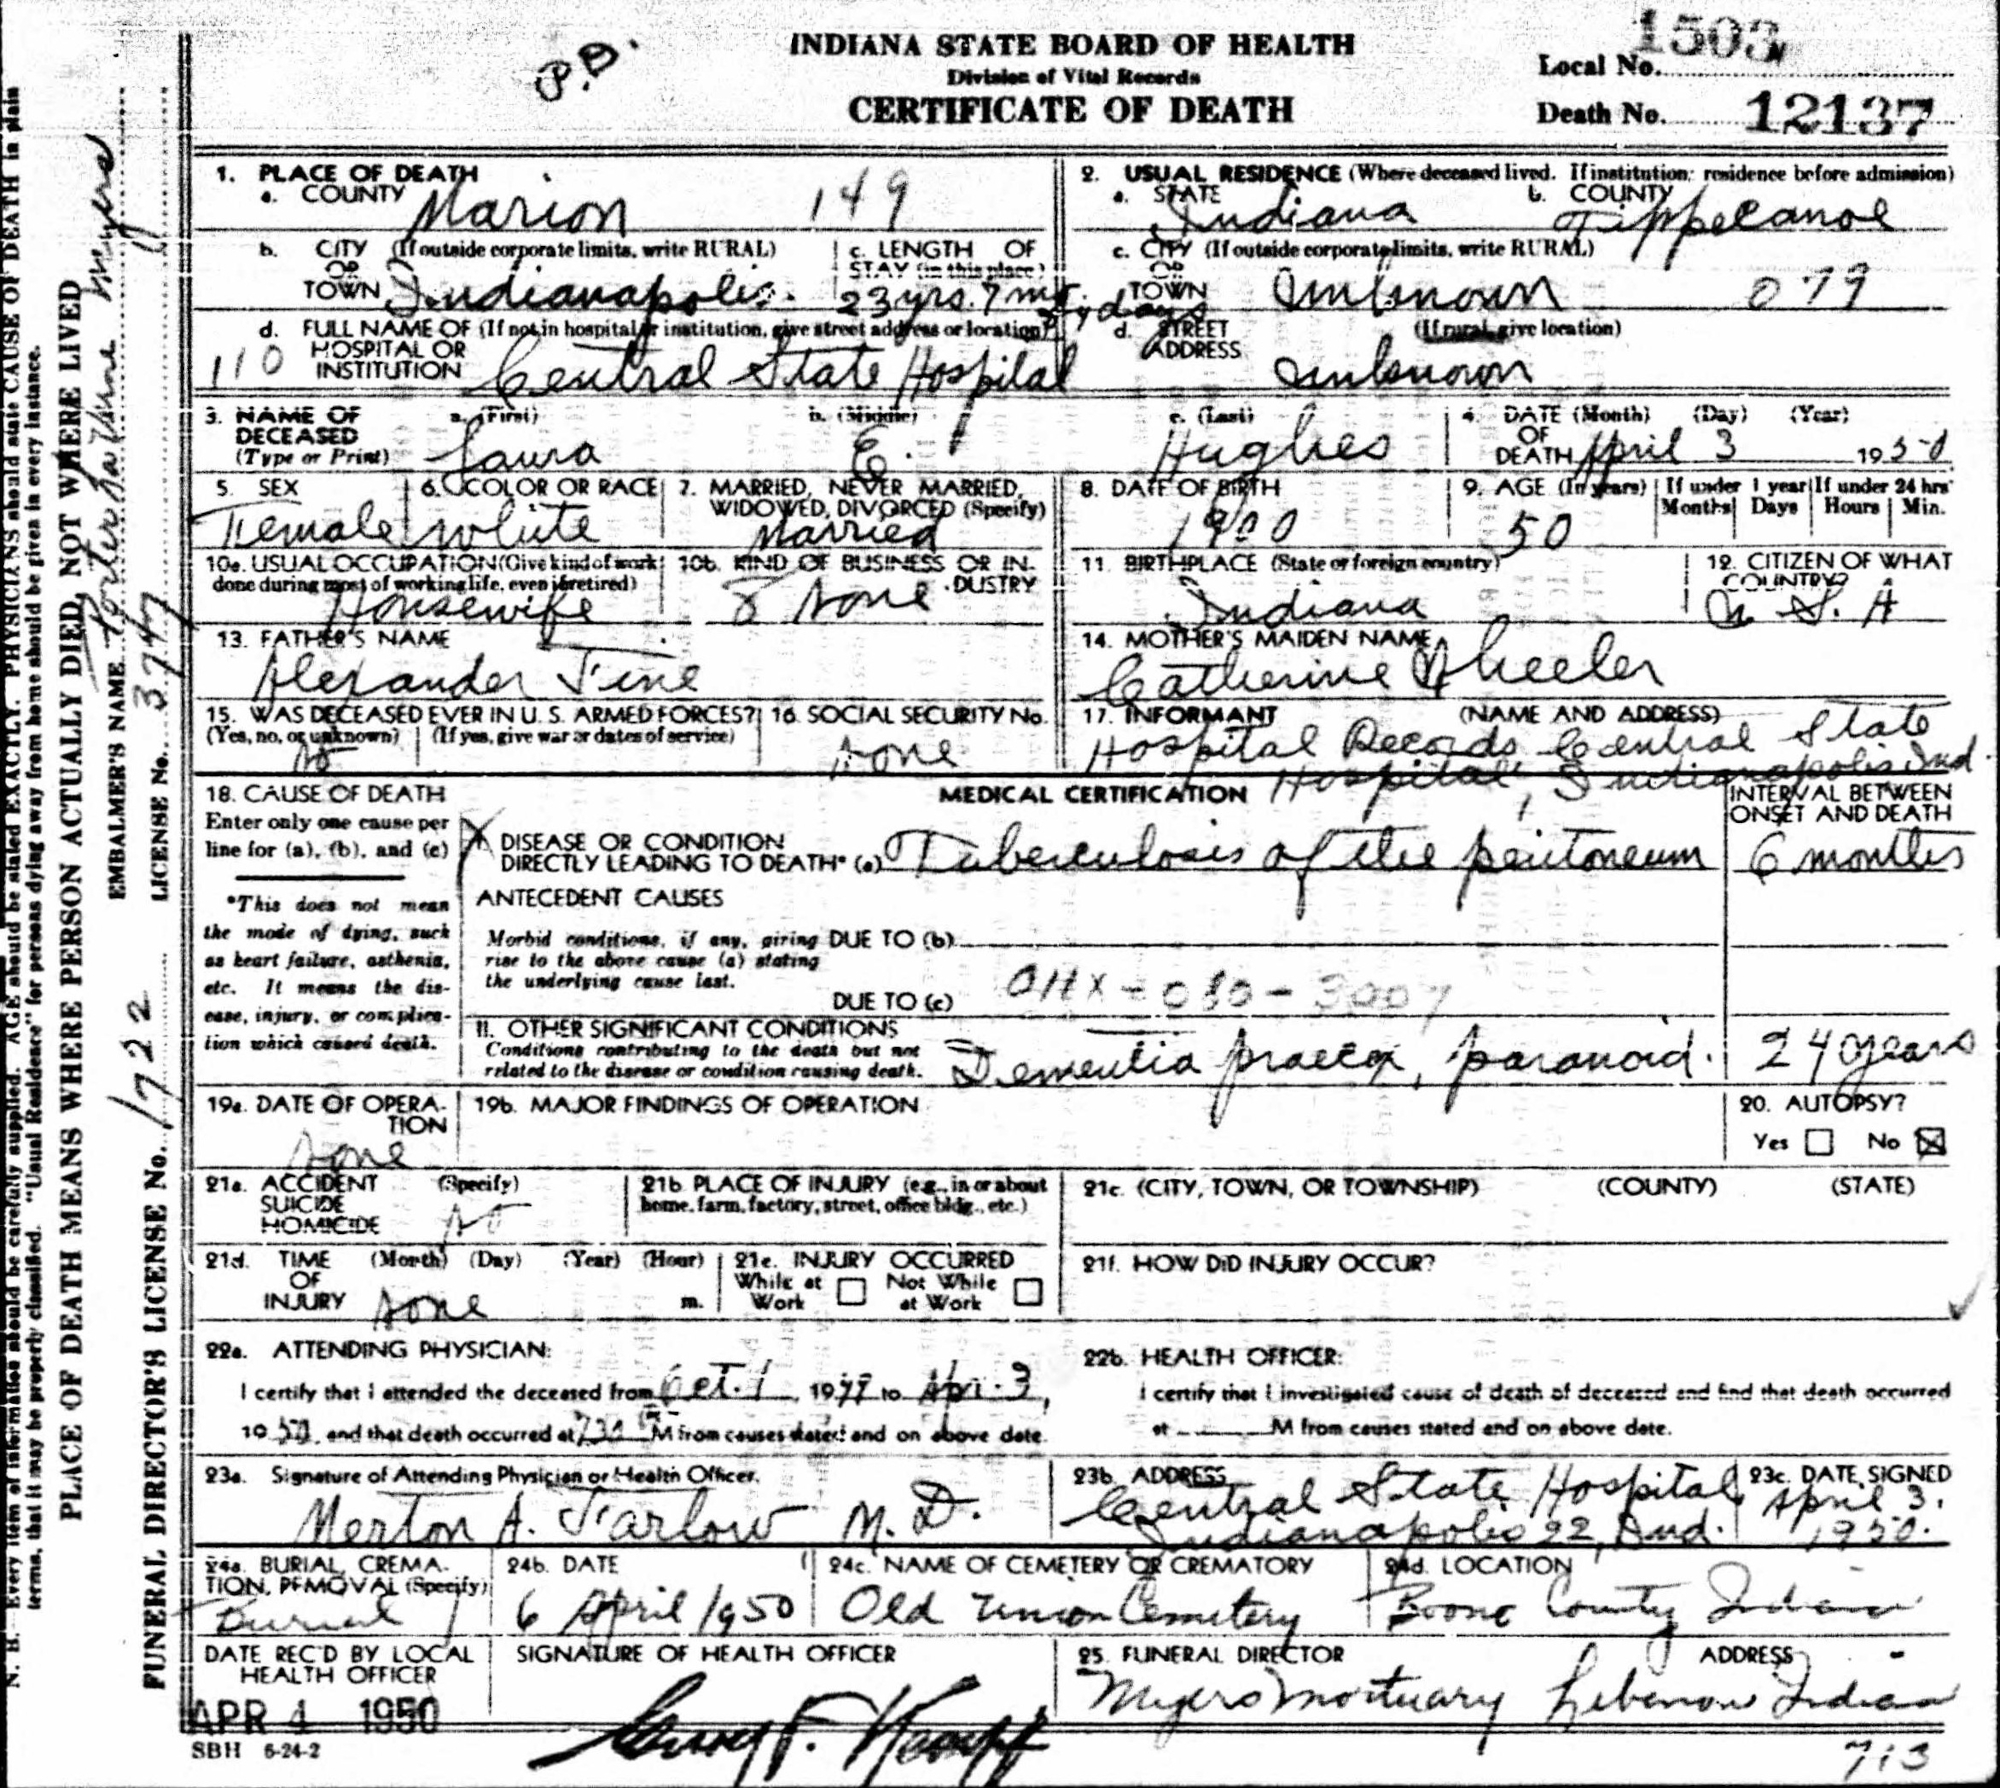 P.B.
INDIANA STATE BOARD OF HEALTH
Division of Vital Records
CERTIFICATE OF DEATH
Local No. 1503
Death No. 12137
1. PLACE OF DEATH
a. COUNTY Marion 149
2. USUAL RESIDENCE (Where deceased lived. If institution: residence before admission)
a. STATE Indiana b. COUNTY Tippecanoe
b. CITY (If outside corporate limits, write RURAL) OR TOWN Indianapolis.
c. LENGTH OF STAY (in this place) 23 yrs. 7 mo. days
c. CITY (If outside corporate limits, write RURAL) OR TOWN Unknown 079
d. FULL NAME OF (If not in hospital or institution, give street address or location) HOSPITAL OR INSTITUTION Central State Hospital
110
d. STREET ADDRESS (If rural, give location) Unknown
3. NAME OF DECEASED (Type or Print)
a. (First) Laura b. (Middle) E. c. (Last) Hughes
4. DATE OF DEATH (Month) (Day) (Year) April 3 1950
5. SEX Female
6. COLOR OR RACE White
7. MARRIED, NEVER MARRIED, WIDOWED, DIVORCED (Specify) Married
8. DATE OF BIRTH 1900
9. AGE (In years) 50
If under 1 year Months Days
If under 24 hrs Hours Min.
10a. USUAL OCCUPATION (Give kind of work done during most of working life, even if retired) Housewife
10b. KIND OF BUSINESS OR INDUSTRY None
11. BIRTHPLACE (State or foreign country) Indiana
12. CITIZEN OF WHAT COUNTRY? U. S. A
13. FATHER'S NAME
Alexander Fine
14. MOTHER'S MAIDEN NAME
Catherine Wheeler
15. WAS DECEASED EVER IN U. S. ARMED FORCES?
(Yes, no, or unknown) (If yes, give war or dates of service)
No
16. SOCIAL SECURITY No.
None
17. INFORMANT (NAME AND ADDRESS)
Hospital Records Central State
Hospital, Indianapolis Ind.
18. CAUSE OF DEATH
Enter only one cause per line for (a), (b), and (c)
MEDICAL CERTIFICATION
INTERVAL BETWEEN ONSET AND DEATH
I. DISEASE OR CONDITION DIRECTLY LEADING TO DEATH* (a) Tuberculosis of the peritoneum 6 months
*This does not mean the mode of dying, such as heart failure, asthenia, etc. It means the disease, injury, or complication which caused death.
ANTECEDENT CAUSES
Morbid conditions, if any, giving rise to the above cause (a) stating the underlying cause last.
DUE TO (b)
DUE TO (c)
II. OTHER SIGNIFICANT CONDITIONS
Conditions contributing to the death but not related to the disease or condition causing death.
Dementia praecox, paranoid. 24 years
19a. DATE OF OPERATION None
19b. MAJOR FINDINGS OF OPERATION
20. AUTOPSY?
Yes No
21a. ACCIDENT SUICIDE HOMICIDE (Specify) No
21b PLACE OF INJURY (e.g., in or about home, farm, factory, street, office bldg., etc.)
21c. (CITY, TOWN, OR TOWNSHIP) (COUNTY) (STATE)
21d. TIME OF INJURY (Month) (Day) (Year) (Hour) m. None
21e. INJURY OCCURRED
While at Work Not While at Work
21f. HOW DID INJURY OCCUR?
22a. ATTENDING PHYSICIAN:
I certify that I attended the deceased from Oct. 1 1949 to Apr. 3,
1950, and that death occurred at 730 M from causes stated and on above date.
22b. HEALTH OFFICER:
I certify that I investigated cause of death of deceased and find that death occurred
at M from causes stated and on above date.
23a. Signature of Attending Physician or Health Officer.
Merton A. Farlow M. D.
23b. ADDRESS
Central State Hospital,
Indianapolis 22, Ind.
23c. DATE SIGNED
April 3,
1950.
24a. BURIAL, CREMATION, REMOVAL (Specify)
Burial
24b. DATE
6 April 1950
24c. NAME OF CEMETERY OR CREMATORY
Old Union Cemetery
24d. LOCATION
Boone County Indiana
DATE REC'D BY LOCAL HEALTH OFFICER
APR 4 1950
SIGNATURE OF HEALTH OFFICER
25. FUNERAL DIRECTOR ADDRESS
Myers Mortuary Lebanon Indiana
SBH 6-24-2
713
N. B.—Every item of information should be carefully supplied. AGE should be stated EXACTLY. PHYSICIANS should state CAUSE OF DEATH in plain
terms, that it may be properly classified. "Usual Residence" for persons dying away from home should be given in every instance.
PLACE OF DEATH MEANS WHERE PERSON ACTUALLY DIED, NOT WHERE LIVED
EMBALMER'S NAME Myers
FUNERAL DIRECTOR'S LICENSE No. 1722 LICENSE No. 3747